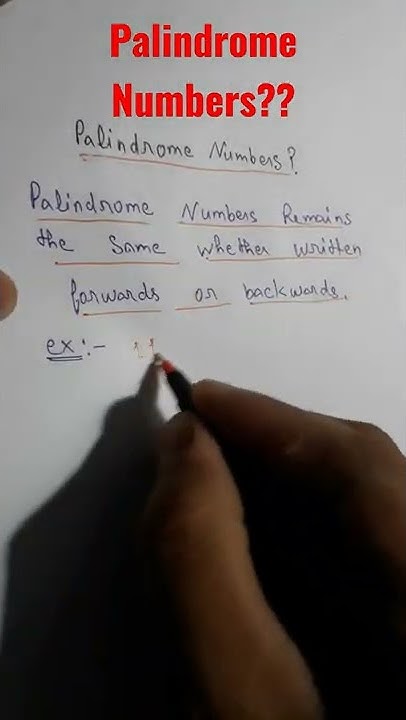 Palindrome
Numbers??
Palindrome Numbers?
Palindrome Numbers Remains
the Same whether written
forwards or backwards.
ex:- 11